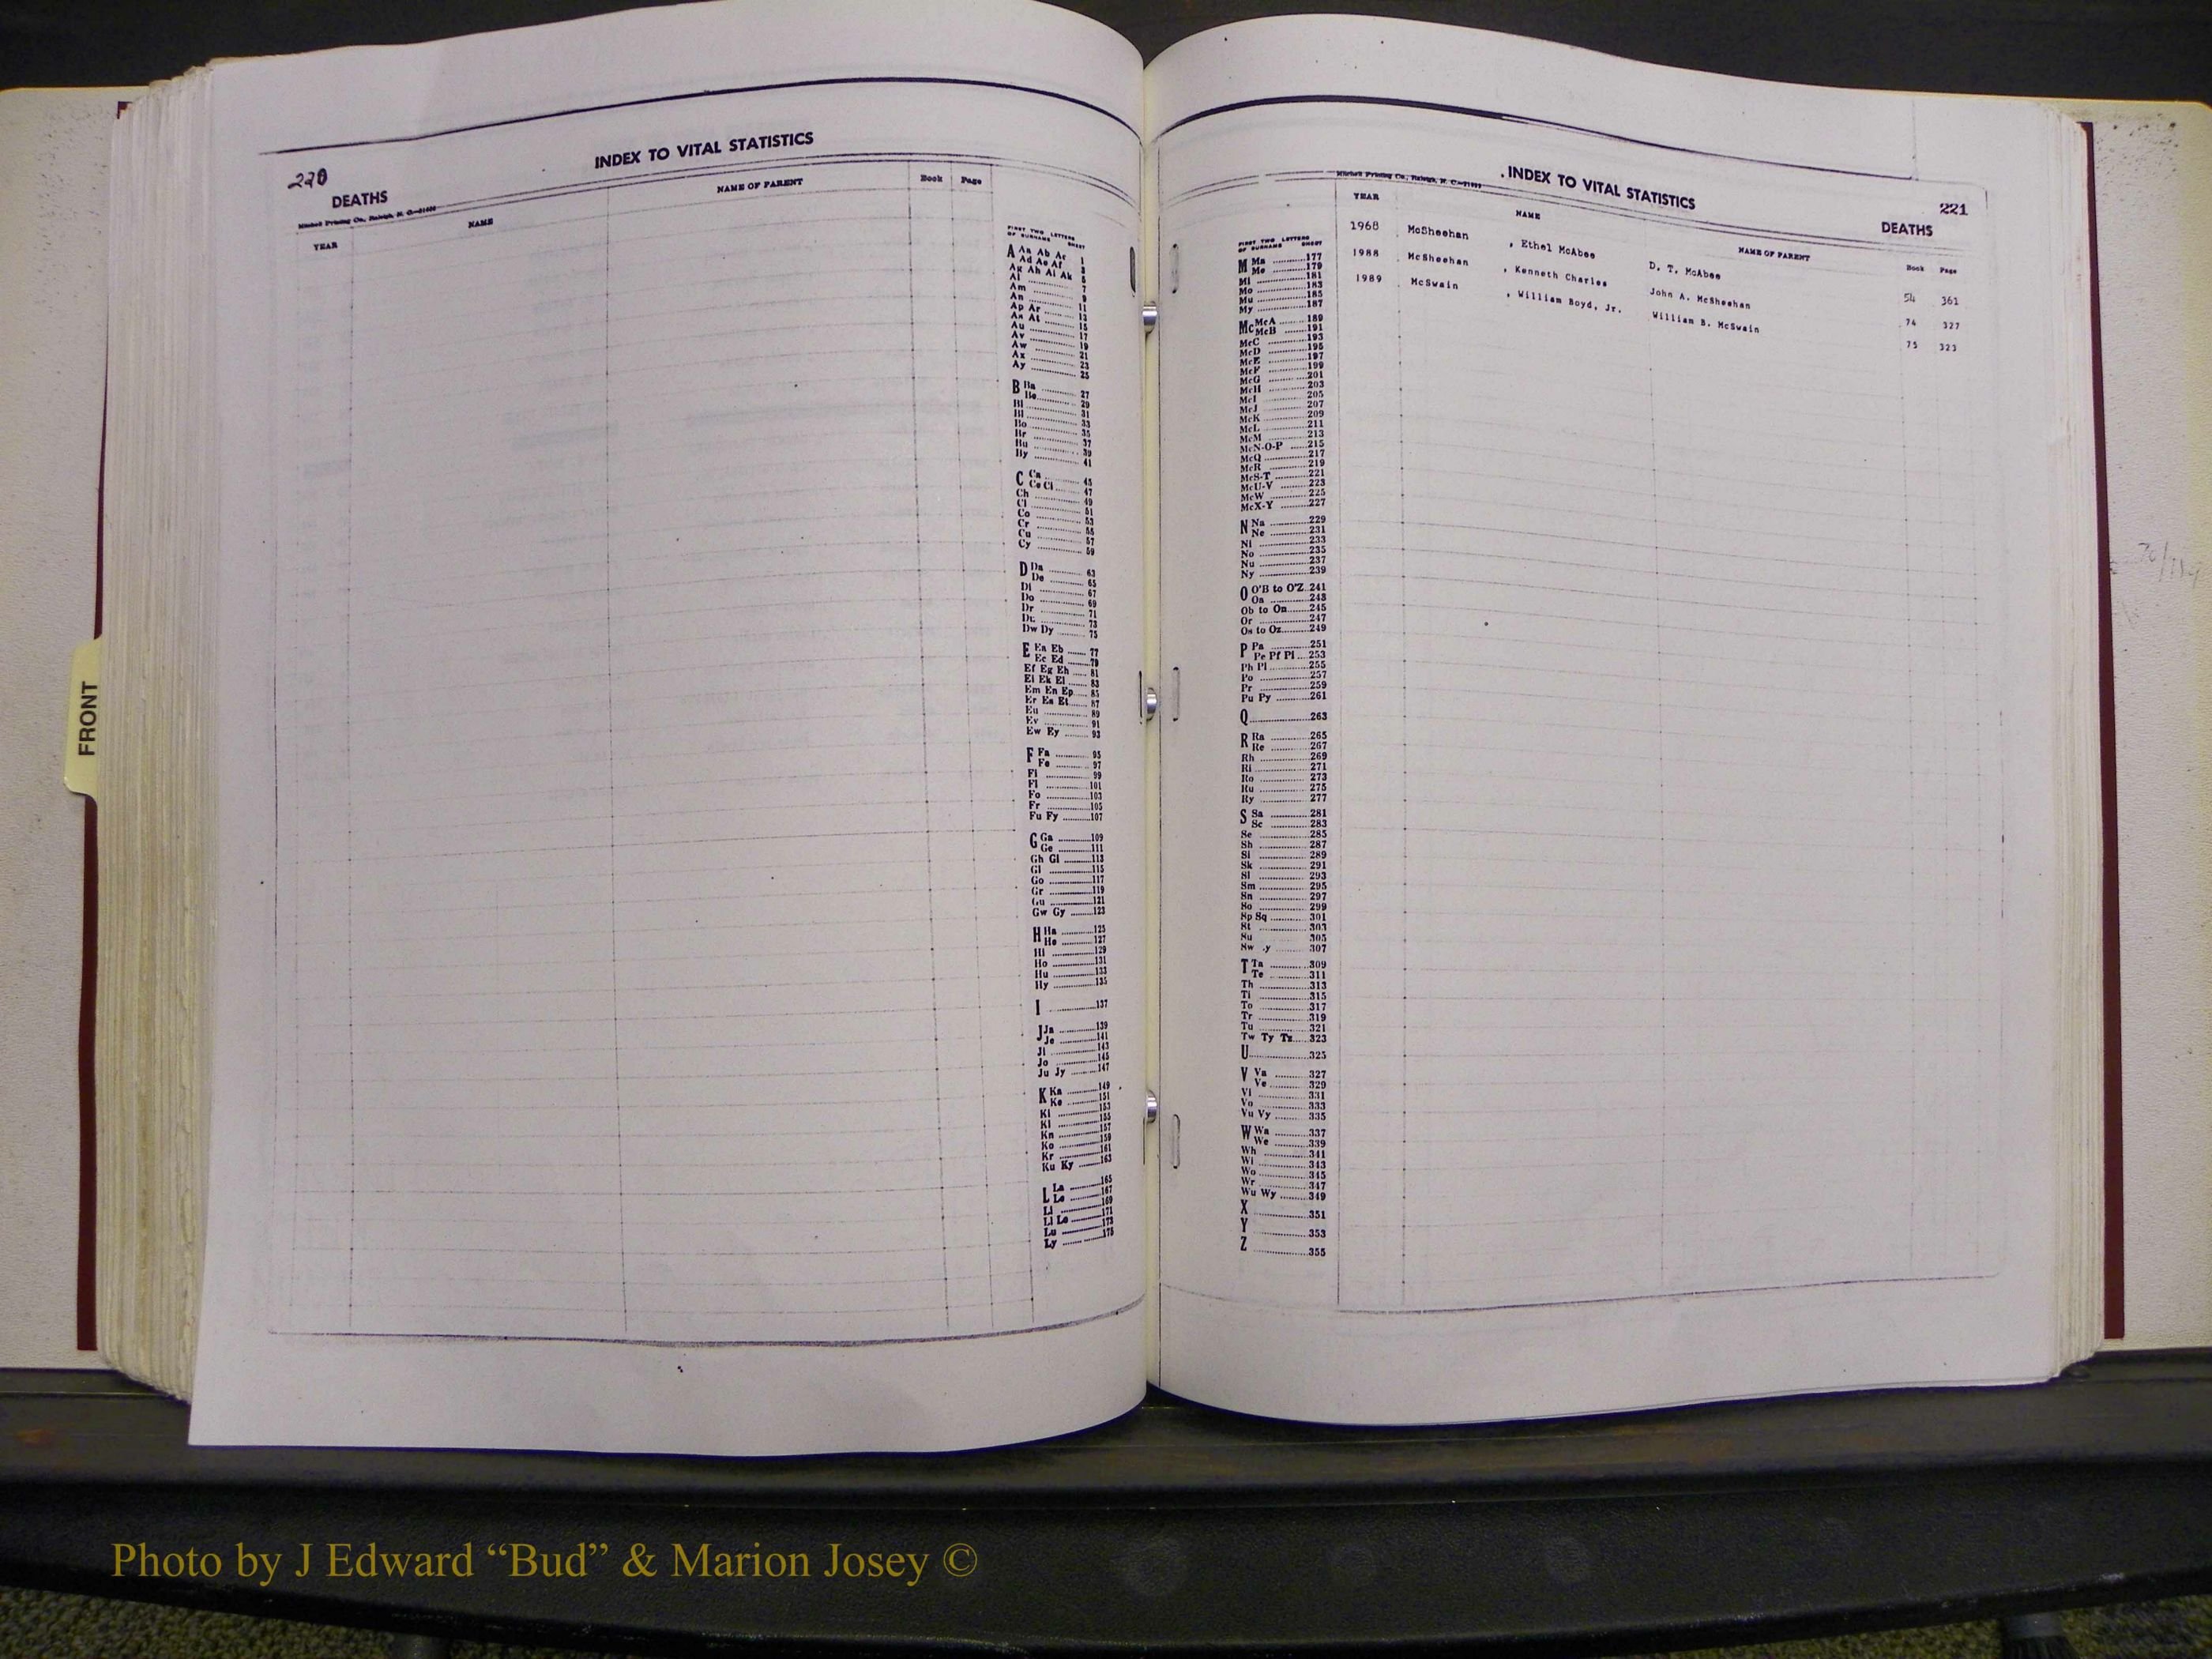 FRONT
220
INDEX TO VITAL STATISTICS
DEATHS
Mitchell Printing Co., Raleigh, N. C.
YEAR NAME NAME OF PARENT Book Page
FIRST TWO LETTERS
OF SURNAME SHEET
A Aa Ab Ac 1
Ad Ae Af 3
Ag Ah Ai Ak 5
Al 7
Am 9
An 11
Ap Ar 13
As At 15
Au 17
Av 19
Aw 21
Ax 23
Ay 25
B Ba 27
Be 29
Bi 31
Bl 33
Bo 35
Br 37
Bu 39
By 41
C Ca 45
Ce Ci 47
Ch 49
Cl 51
Co 53
Cr 55
Cu 57
Cy 59
D Da 63
De 65
Di 67
Do 69
Dr 71
Du 73
Dw Dy 75
E Ea Eb 77
Ec Ed 79
Ef Eg Eh 81
Ei Ek El 83
Em En Ep 85
Er Es Et 87
Eu 89
Ev 91
Ew Ey 93
F Fa 95
Fe 97
Fi 99
Fl 101
Fo 103
Fr 105
Fu Fy 107
G Ga 109
Ge 111
Gh Gi 113
Gl 115
Go 117
Gr 119
Gu 121
Gw Gy 123
H Ha 125
He 127
Hi 129
Ho 131
Hu 133
Hy 135
I 137
J Ja 139
Je 141
Ji 143
Jo 145
Ju Jy 147
K Ka 149
Ke 151
Ki 153
Kl 155
Kn 157
Ko 159
Kr 161
Ku Ky 163
L La 165
Le 167
Li 169
Ll Lo 171
Lu 173
Ly 175
INDEX TO VITAL STATISTICS
221
DEATHS
Mitchell Printing Co., Raleigh, N. C.
YEAR NAME NAME OF PARENT Book Page
1968 McSheehan , Ethel McAbee D. T. McAbee 54 361
1988 McSheehan , Kenneth Charles John A. McSheehan 74 327
1989 McSwain , William Boyd, Jr. William B. McSwain 75 323
FIRST TWO LETTERS
OF SURNAME SHEET
M Ma 177
Me 179
Mi 181
Mo 183
Mu 185
My 187
Mc McA 189
McB 191
McC 193
McD 195
McE 197
McF 199
McG 201
McH 203
McI 205
McJ 207
McK 209
McL 211
McM 213
McN-O-P 215
McQ 217
McR 219
McS-T 221
McU-V 223
McW 225
McX-Y 227
N Na 229
Ne 231
Ni 233
No 235
Nu 237
Ny 239
O O'B to O'Z 241
Oa 243
Ob to On 245
Or 247
Os to Oz 249
P Pa 251
Pe Pf Pi 253
Ph Pl 255
Po 257
Pr 259
Pu Py 261
Q 263
R Ra 265
Re 267
Rh 269
Ri 271
Ro 273
Ru 275
Ry 277
S Sa 281
Sc 283
Se 285
Sh 287
Si 289
Sk 291
Sl 293
Sm 295
Sn 297
So 299
Sp Sq 301
St 303
Su 305
Sw y 307
T Ta 309
Te 311
Th 313
Ti 315
To 317
Tr 319
Tu 321
Tw Ty Tz 323
U 325
V Va 327
Ve 329
Vi 331
Vo 333
Vu Vy 335
W Wa 337
We 339
Wh 341
Wi 343
Wo 345
Wr 347
Wu Wy 349
X 351
Y 353
Z 355
Photo by J Edward “Bud” & Marion Josey ©